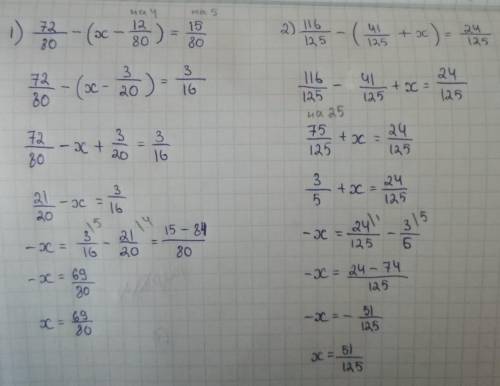 на 4 на 5
1) 72/80 - (x - 12/80) = 15/80
72/80 - (x - 3/20) = 3/16
72/80 - x + 3/20 = 3/16
21/20 - x = 3/16
-x = 3/16 \5 - 21/20 \4 = 15 - 84/80
-x = 69/80
x = 69/80
2) 116/125 - (41/125 + x) = 24/125
116/125 - 41/125 + x = 24/125
на 25
75/125 + x = 24/125
3/5 + x = 24/125
-x = 24/125 \1 - 3/5 \5
-x = 24 - 74/125
-x = - 51/125
x = 51/125